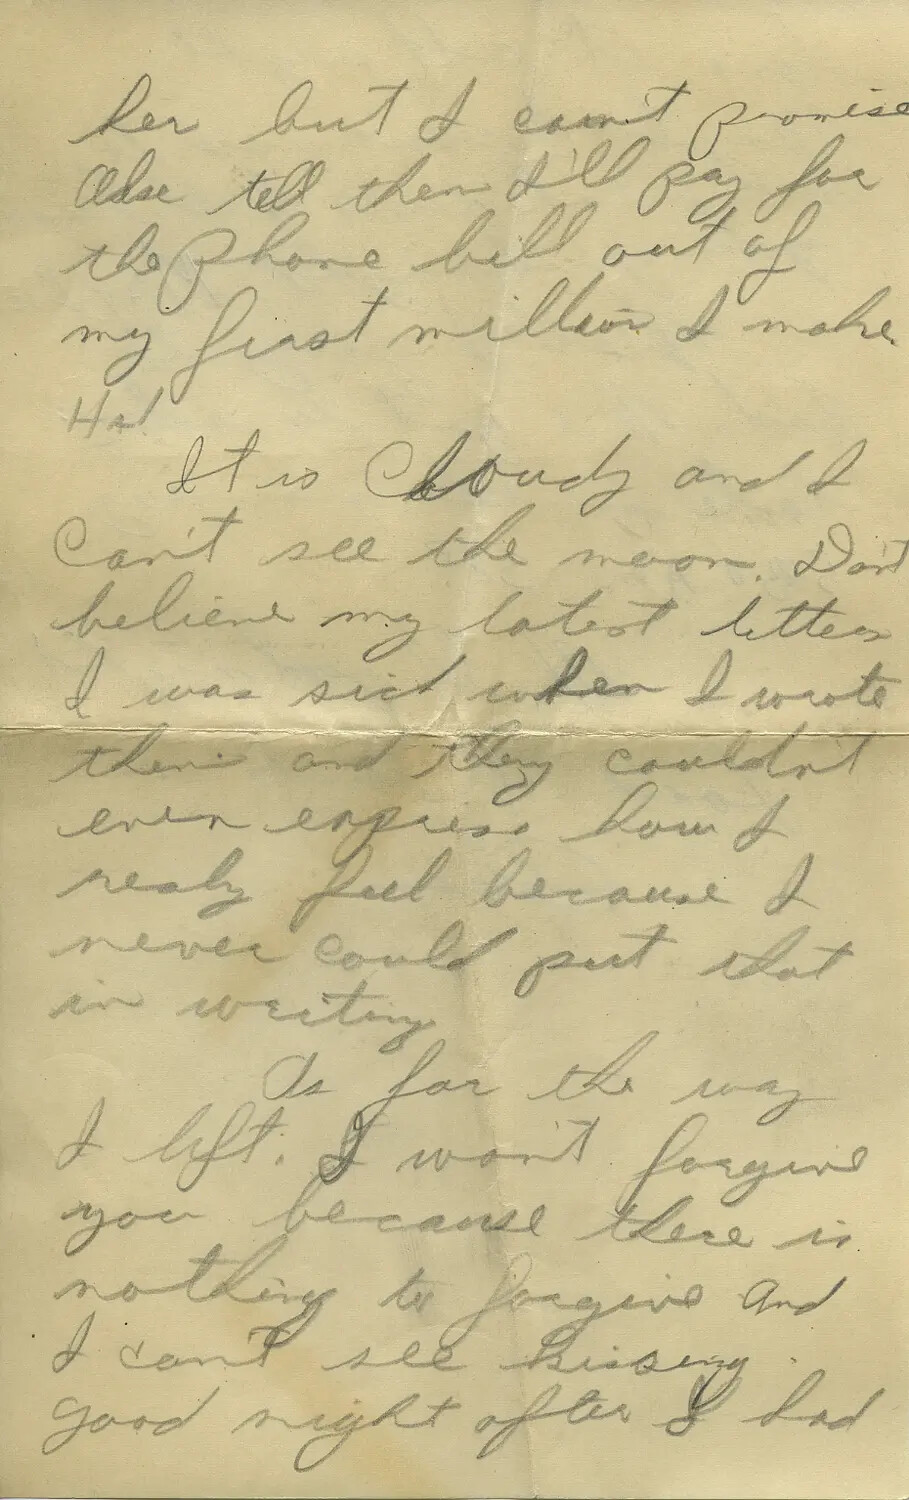 her but I can't promise
Also tell them I'll pay for
the phone bill out of
my first million I make.
Ha!
It is Cloudy and I
Can't see the moon. Don't
believe my latest letters
I was sick when I wrote
them and they couldn't
even express how I
realy feel because I
never could put that
in writing
As for the way
I left. I won't forgive
you because there is
nothing to forgive And
I can't see kissing
good night after I had